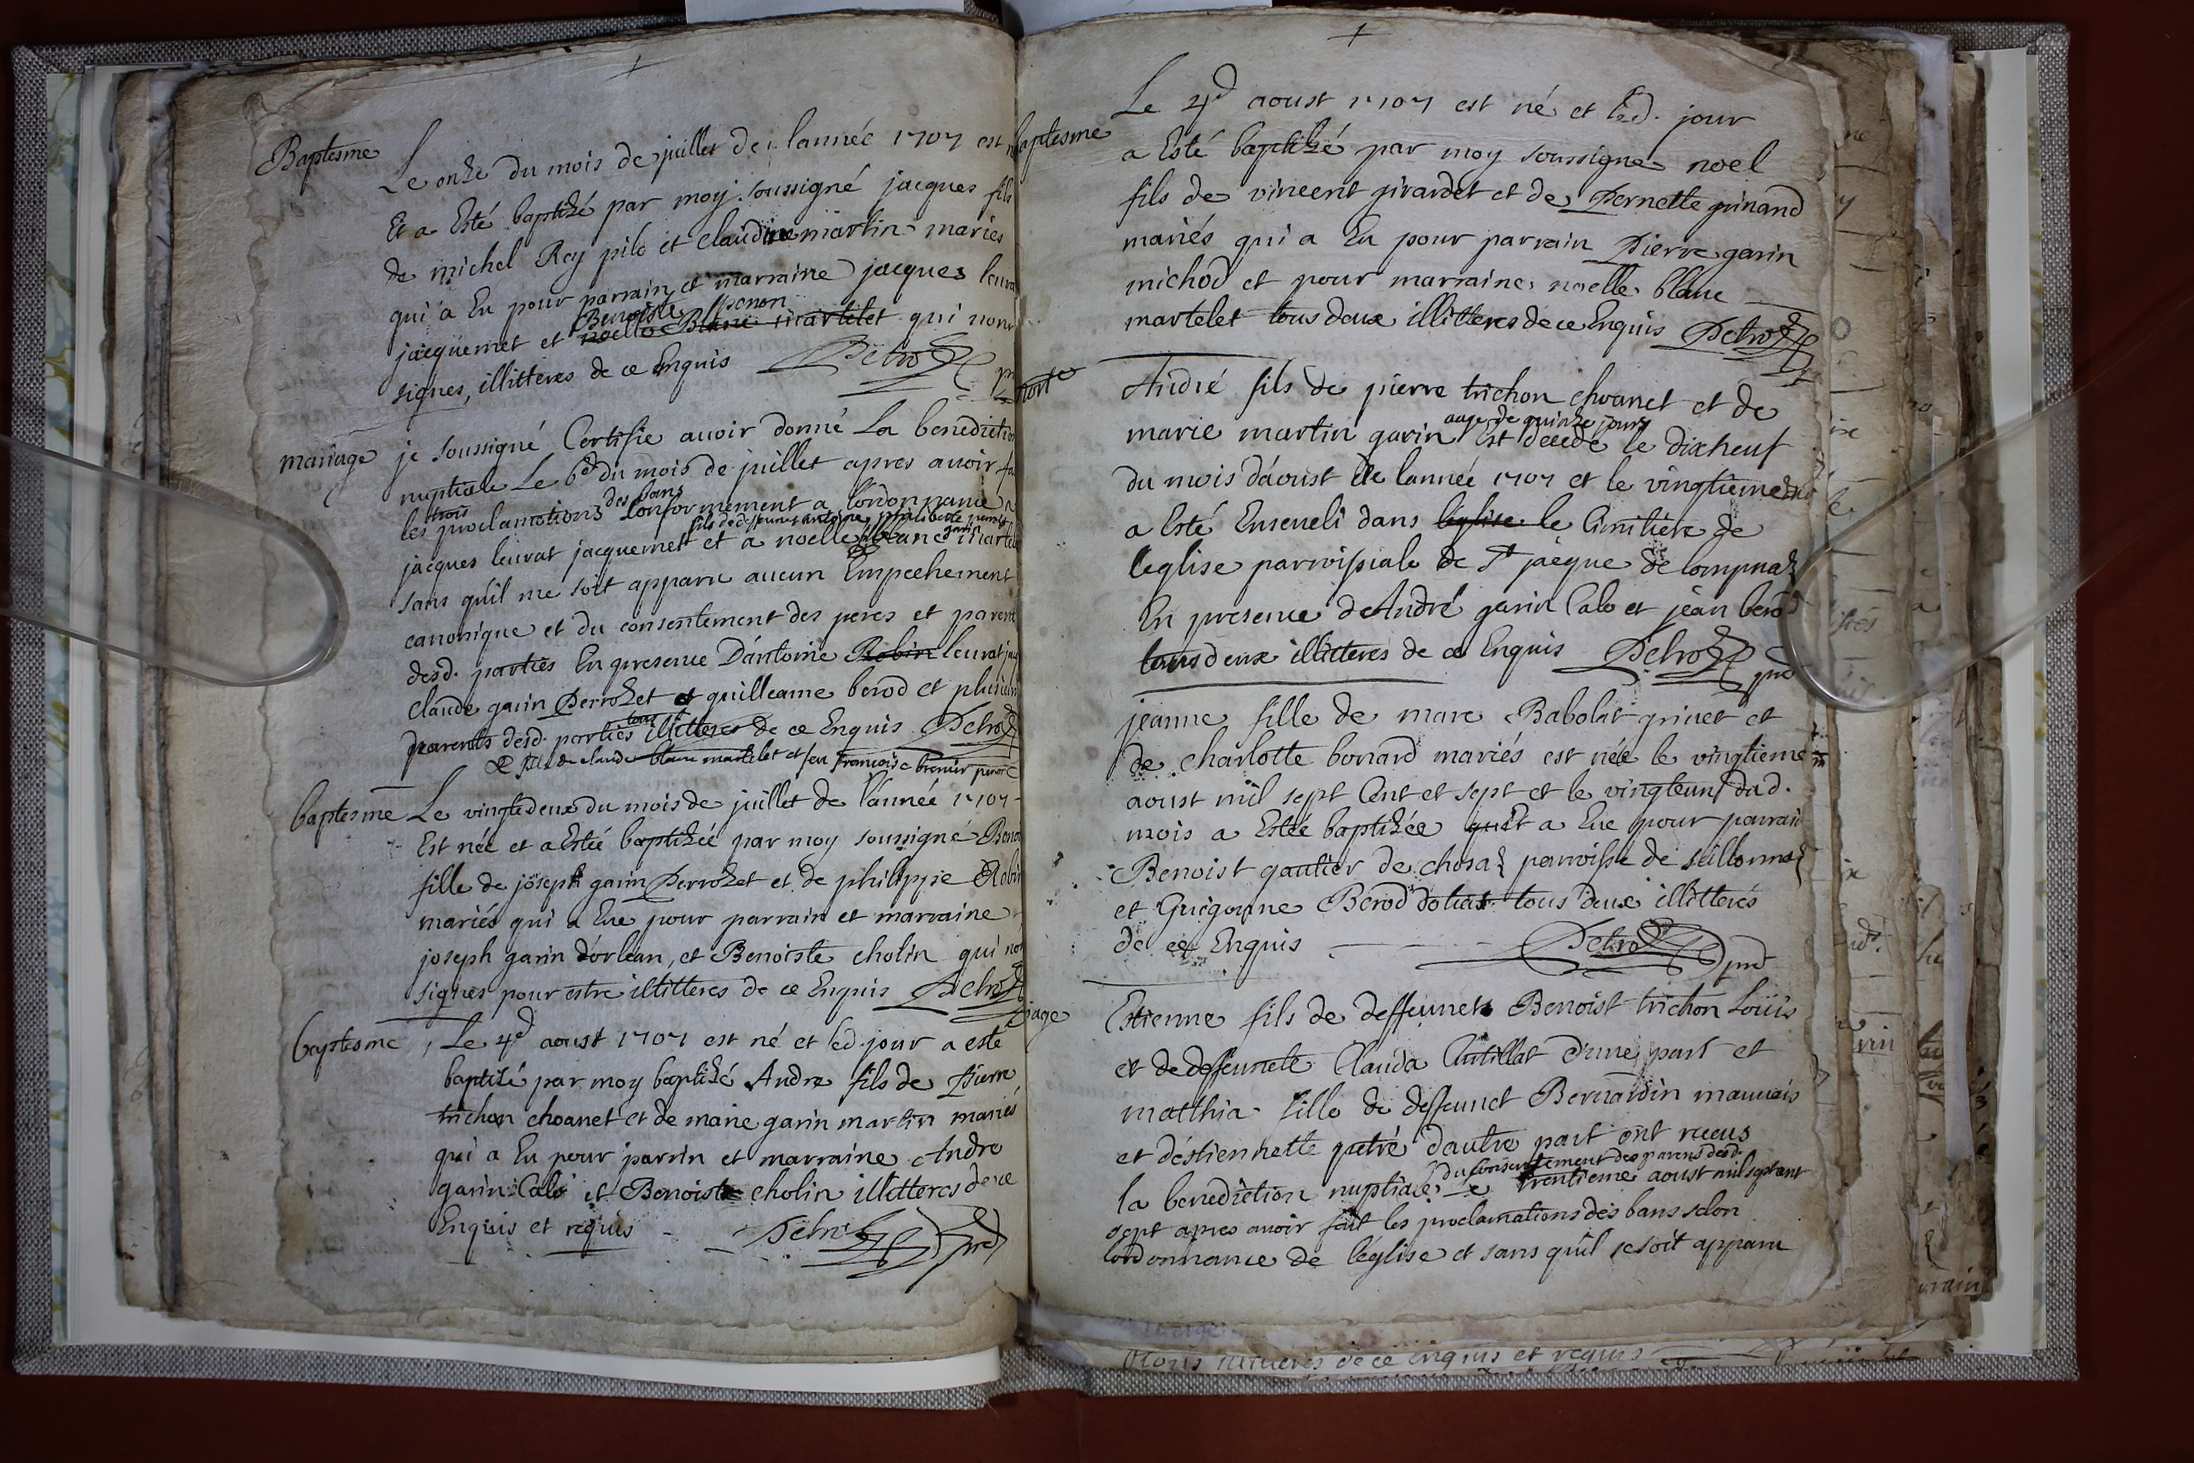 Baptesme
Le onze du mois de juillet de lannée 1707 est
Et a Esté baptizé par moy soussigné jacques fils
de michel Rey pilo et Claudine martin mariés
qui a Eu pour parrain et marraine jacques leuvra
Benoiste
jacquemet et noelle Blanc martelet qui nont
signes, illitteres de ce Enquis Petroz
mariage
je soussigné Certifie avoir donné La benedictio
nuptiale Le 6e du mois de juillet apres avoir fa
trois des bans
les proclamations Conformement a lordonnance
fils de deffunct antoine
jacques leuvrat jacquemet et a noelle blanc martel
sans quil me soit apparu aucun Empechement
canonique et du consentement des peres et parent
desd. parties En presence Dantoine Robin leuvrat
Claude garin Perrozet et guilleaume berod et plusieurs
tous
parents desd. parties illitteres de ce Enquis Petroz
fille de claude blanc martelet et feu françoise
baptesme
Le vingtdeux du mois de juillet de lannée 1707
Est née et a Estée baptizée par moy soussigné Beno
fille de joseph garin Perrozet et de philippie Robi
mariés qui a Eue pour parrain et marraine
joseph garin dorlean, et Benoiste cholin qui
signes pour estre illitteres de ce Enquis Petroz
baptesme
Le 4e aoust 1707 est né et led. jour a esté
baptizé par moy baptizé Andre fils de Pierre
trichon choanet et de marie garin martin mariés
qui a Eu pour parrin et marraine Andre
garin Calo et Benoiste cholin illitteres de ce
Enquis et requis Petroz
baptesme
Le 4e aoust 1707 est né et led. jour
a Esté baptizé par moy soussigné noel
fils de vincent girardet et de Pernette guinand
mariés qui a Eu pour parrain Pierre garin
michod et pour marraine noelle blanc
martelet tous deux illitteres de ce Enquis Petroz
mort
André fils de pierre trichon choanet et de
aage de quinze jours
marie martin garin Est decedé le dixneuf
du mois daoust de lannée 1707 et le vingtieme
a Esté Enseveli dans leglise le Cimitiere de
leglise parroissiale de St jacque de lompnaz
En presence dAndré garin Calo et jean berod
tous deux illitteres de ce Enquis Petroz
jeanne fille de marc Babolat grivet et
de charlotte borrard mariés est née le vingtieme
aoust mil sept Cent et sept et le vingteun dud.
mois a Estée baptizée quit a Eue pour parrain
Benoist gautier de chosaz parroisse de seillonnaz
et Guigonne Berod dolias tous deux illitterés
de ce Enquis Petroz
iage
Estienne fils de deffeunct Benoist trichon Loüis
et de deffeuncte Clauda Cutillat dune part et
matthia fille de deffeunct Bernardin mauvais
et destiennette dautre part ont receus
du Consentement des parens desd.
la benediction nuptiale le trentieme aoust mil sept cent
sept apres avoir fait les proclamations des bans selon
lordonnance de léglise et sans quil se soit apparu
tous illitteres de ce enquis et requis